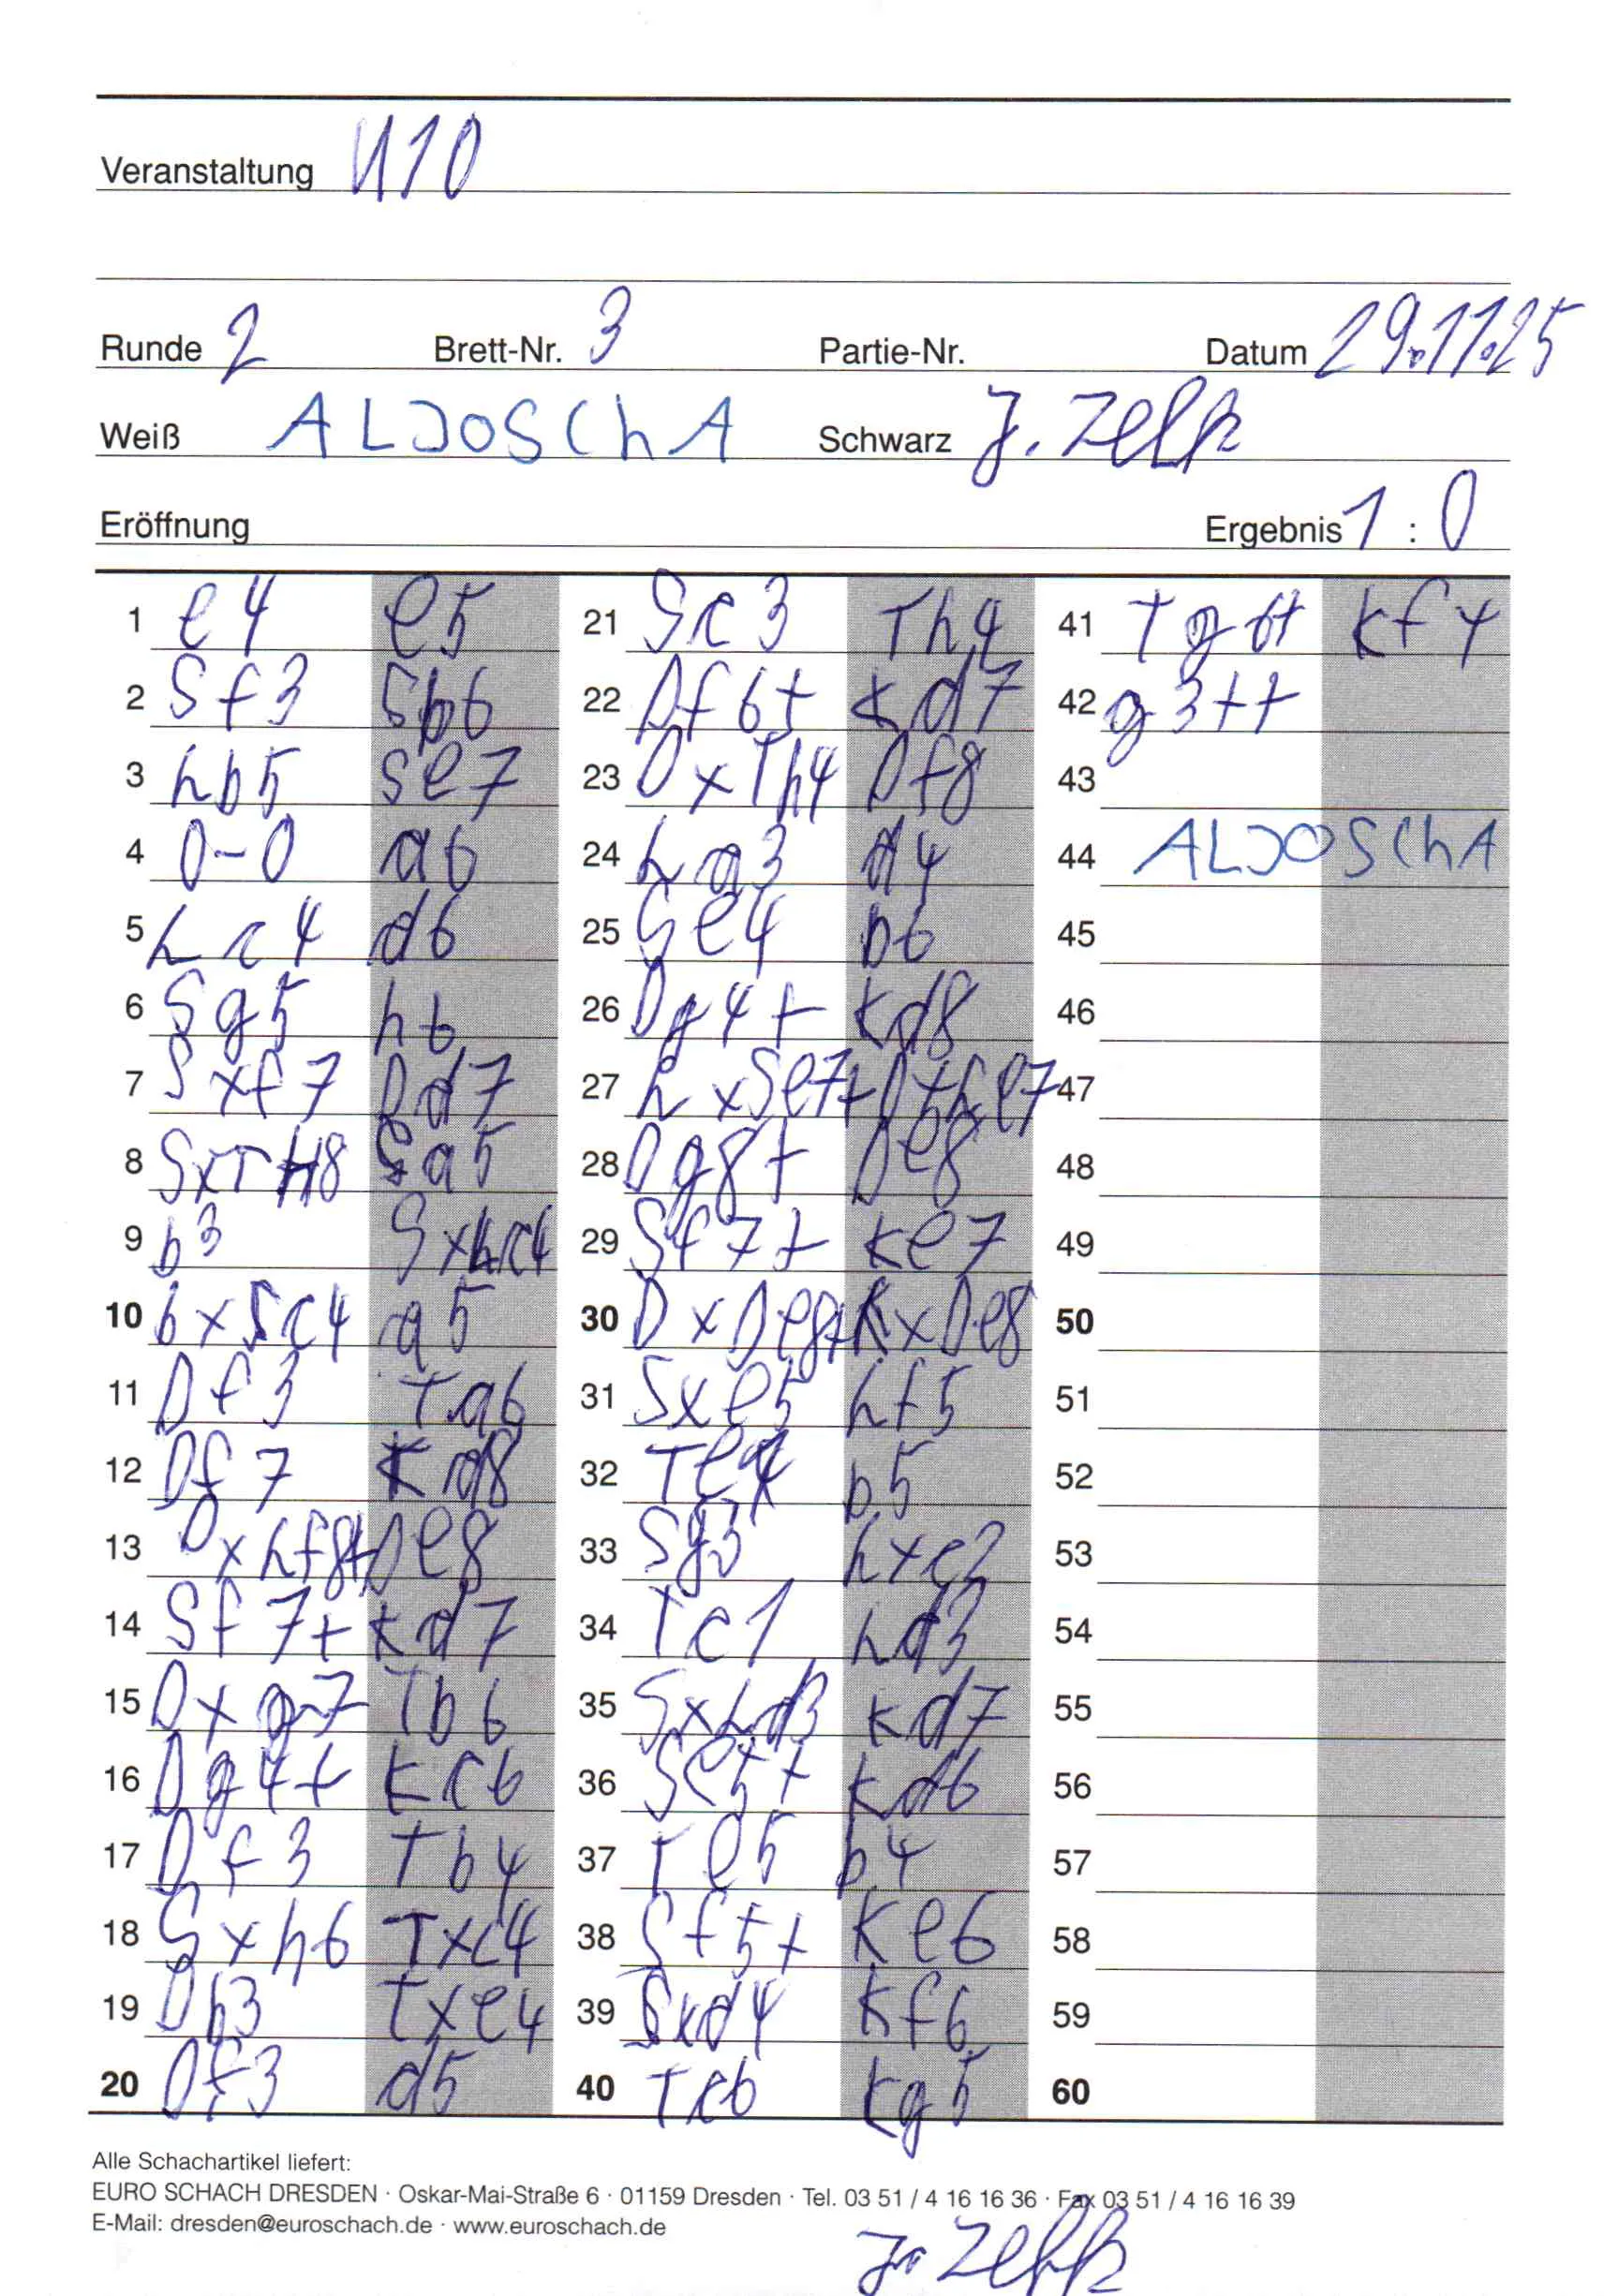 Veranstaltung U10
Runde 2 Brett-Nr. 3 Partie-Nr. Datum 29.11.25
Weiß ALJOSChA Schwarz J. Zelß
Eröffnung Ergebnis 1 : 0
1 e4 e5
2 Sf3 Sb6
3 Lb5 Se7
4 0-0 a6
5 Lc4 d6
6 Sg5 h6
7 Sxf7 Dd7
8 SxTH8 Sa5
9 b3 SxLc4
10 bxSc4 a5
11 Df3 Ta6
12 Df7 Kd8
13 DxLf8+ De8
14 Sf7+ Kd7
15 Dxg7 Tb6
16 Dg4+ Kc6
17 Df3 Tb4
18 Sxh6 Txc4
19 Db3 Txe4
20 Df3 d5
21 Sc3 Th4
22 Df6+ Kd7
23 DxTh4 Df8
24 La3 d4
25 Se4 b6
26 Dg4+ Kd8
27 LxSe7+ DxLe7
28 Dg8+ De8
29 Sf7+ Ke7
30 DxDe8+ KxDe8
31 Sxe5 Lf5
32 Te4 b5
33 Sg3 Lxc2
34 Tc1 Ld3
35 SxLd3 Kd7
36 Se5+ Kd6
37 Te5 b4
38 Sf5+ Ke6
39 Sxd4 Kf6
40 Tc6 Kg5
41 Tg6+ Kf4
42 g3++
43
44 ALJOSChA
45
46
47
48
49
50
51
52
53
54
55
56
57
58
59
60
Alle Schachartikel liefert:
EURO SCHACH DRESDEN · Oskar-Mai-Straße 6 · 01159 Dresden · Tel. 03 51 / 4 16 16 36 · Fax 03 51 / 4 16 16 39
E-Mail: dresden@euroschach.de · www.euroschach.de
J. Zelß